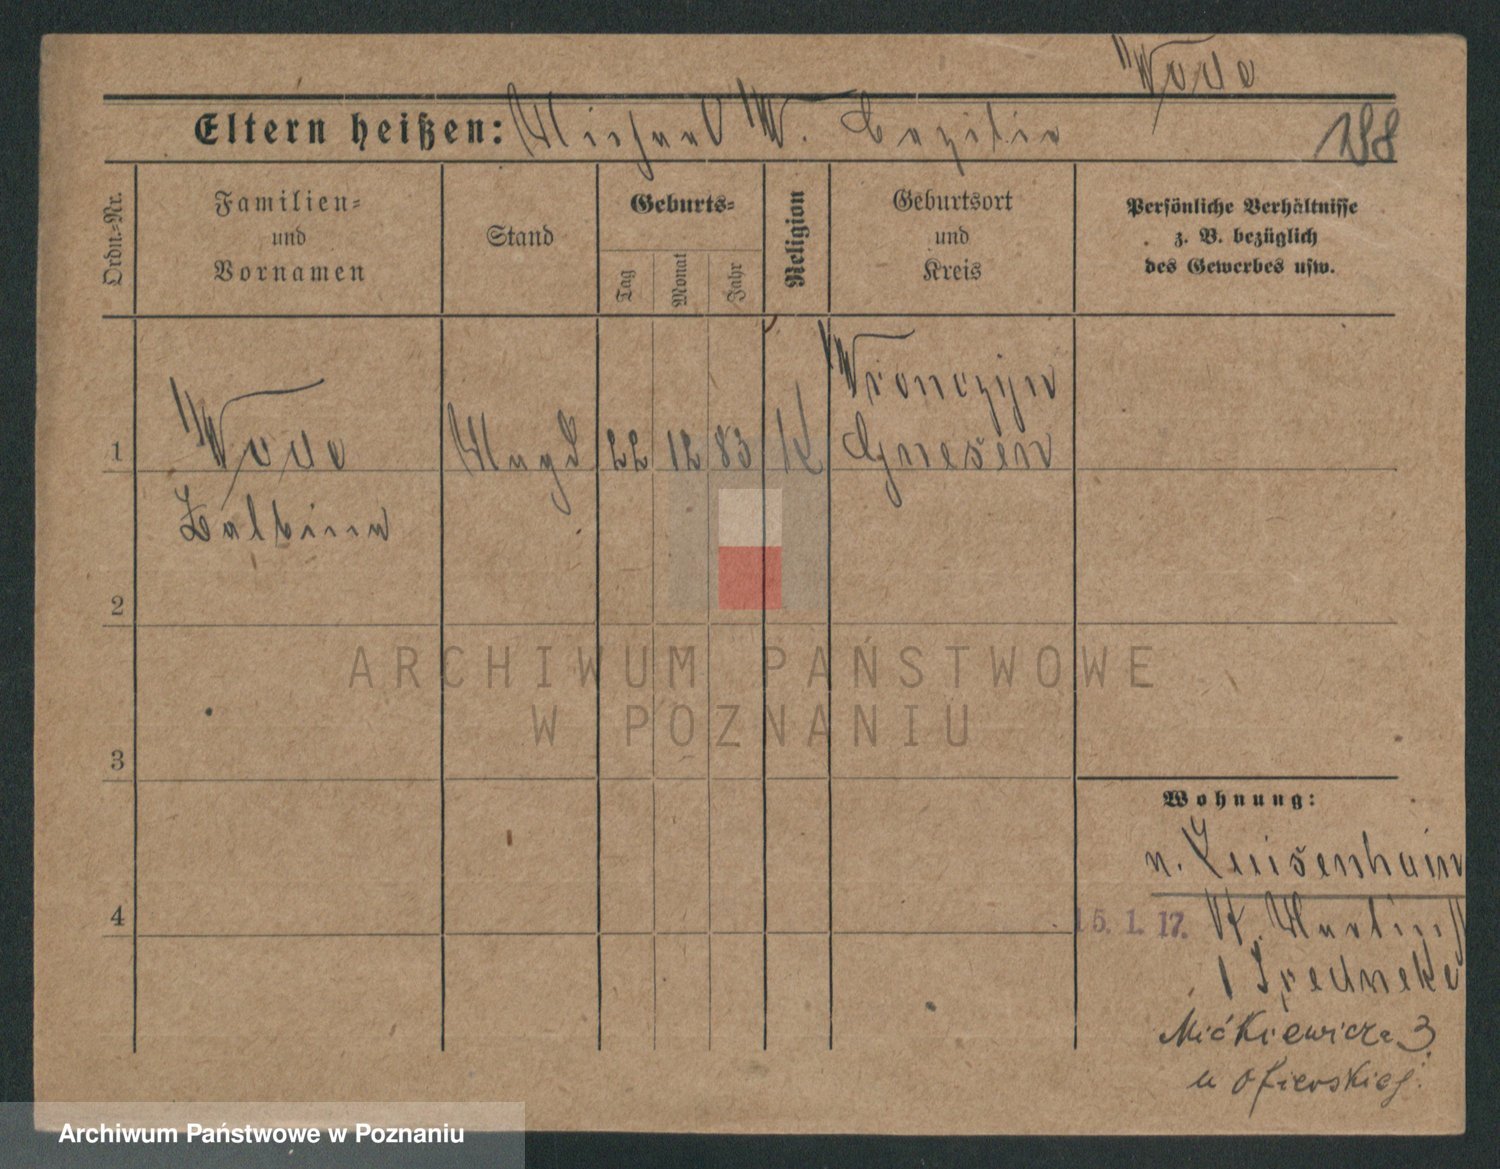 Wode
Eltern heißen: Michael W. Cezilia
198
Ordn.-Nr.
Familien-
und
Vornamen
Stand
Geburts-
Tag
Monat
Jahr
Religion
Geburtsort
und
Kreis
Persönliche Verhältnisse
z. B. bezüglich
des Gewerbes usw.
Wronczyn
1 Wode Magd 22 12 83 K Gnesen
Balbina
2
ARCHIWUM PAŃSTWOWE
W POZNANIU
3
Wohnung:
n. Luisenhain
4
15. 1. 17. St. Martinst
1
Mićkiewicza 3.
u Ofierskiej.
Archiwum Państwowe w Poznaniu